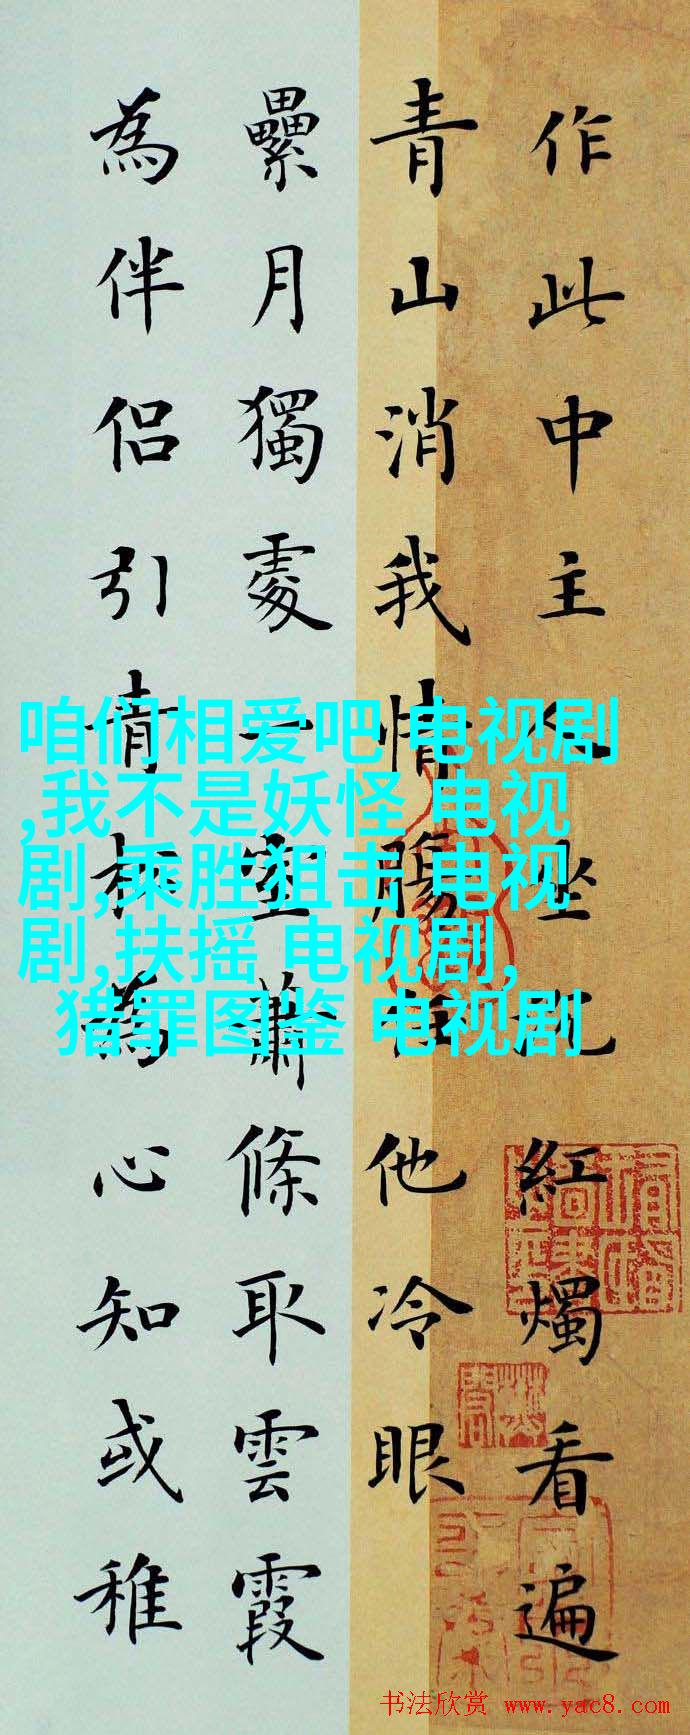 作此中主人坐紅燭看遍
青山消我情腸他冷眼
纍月獨處一室蕭條取雲霞
為伴侶引青松為心知或稚
咱们相爱吧 电视剧
,我不是妖怪 电视
剧,乘胜狙击 电视
剧,扶摇 电视剧,
猎罪图鉴 电视剧
书法欣赏 www.yac8.com